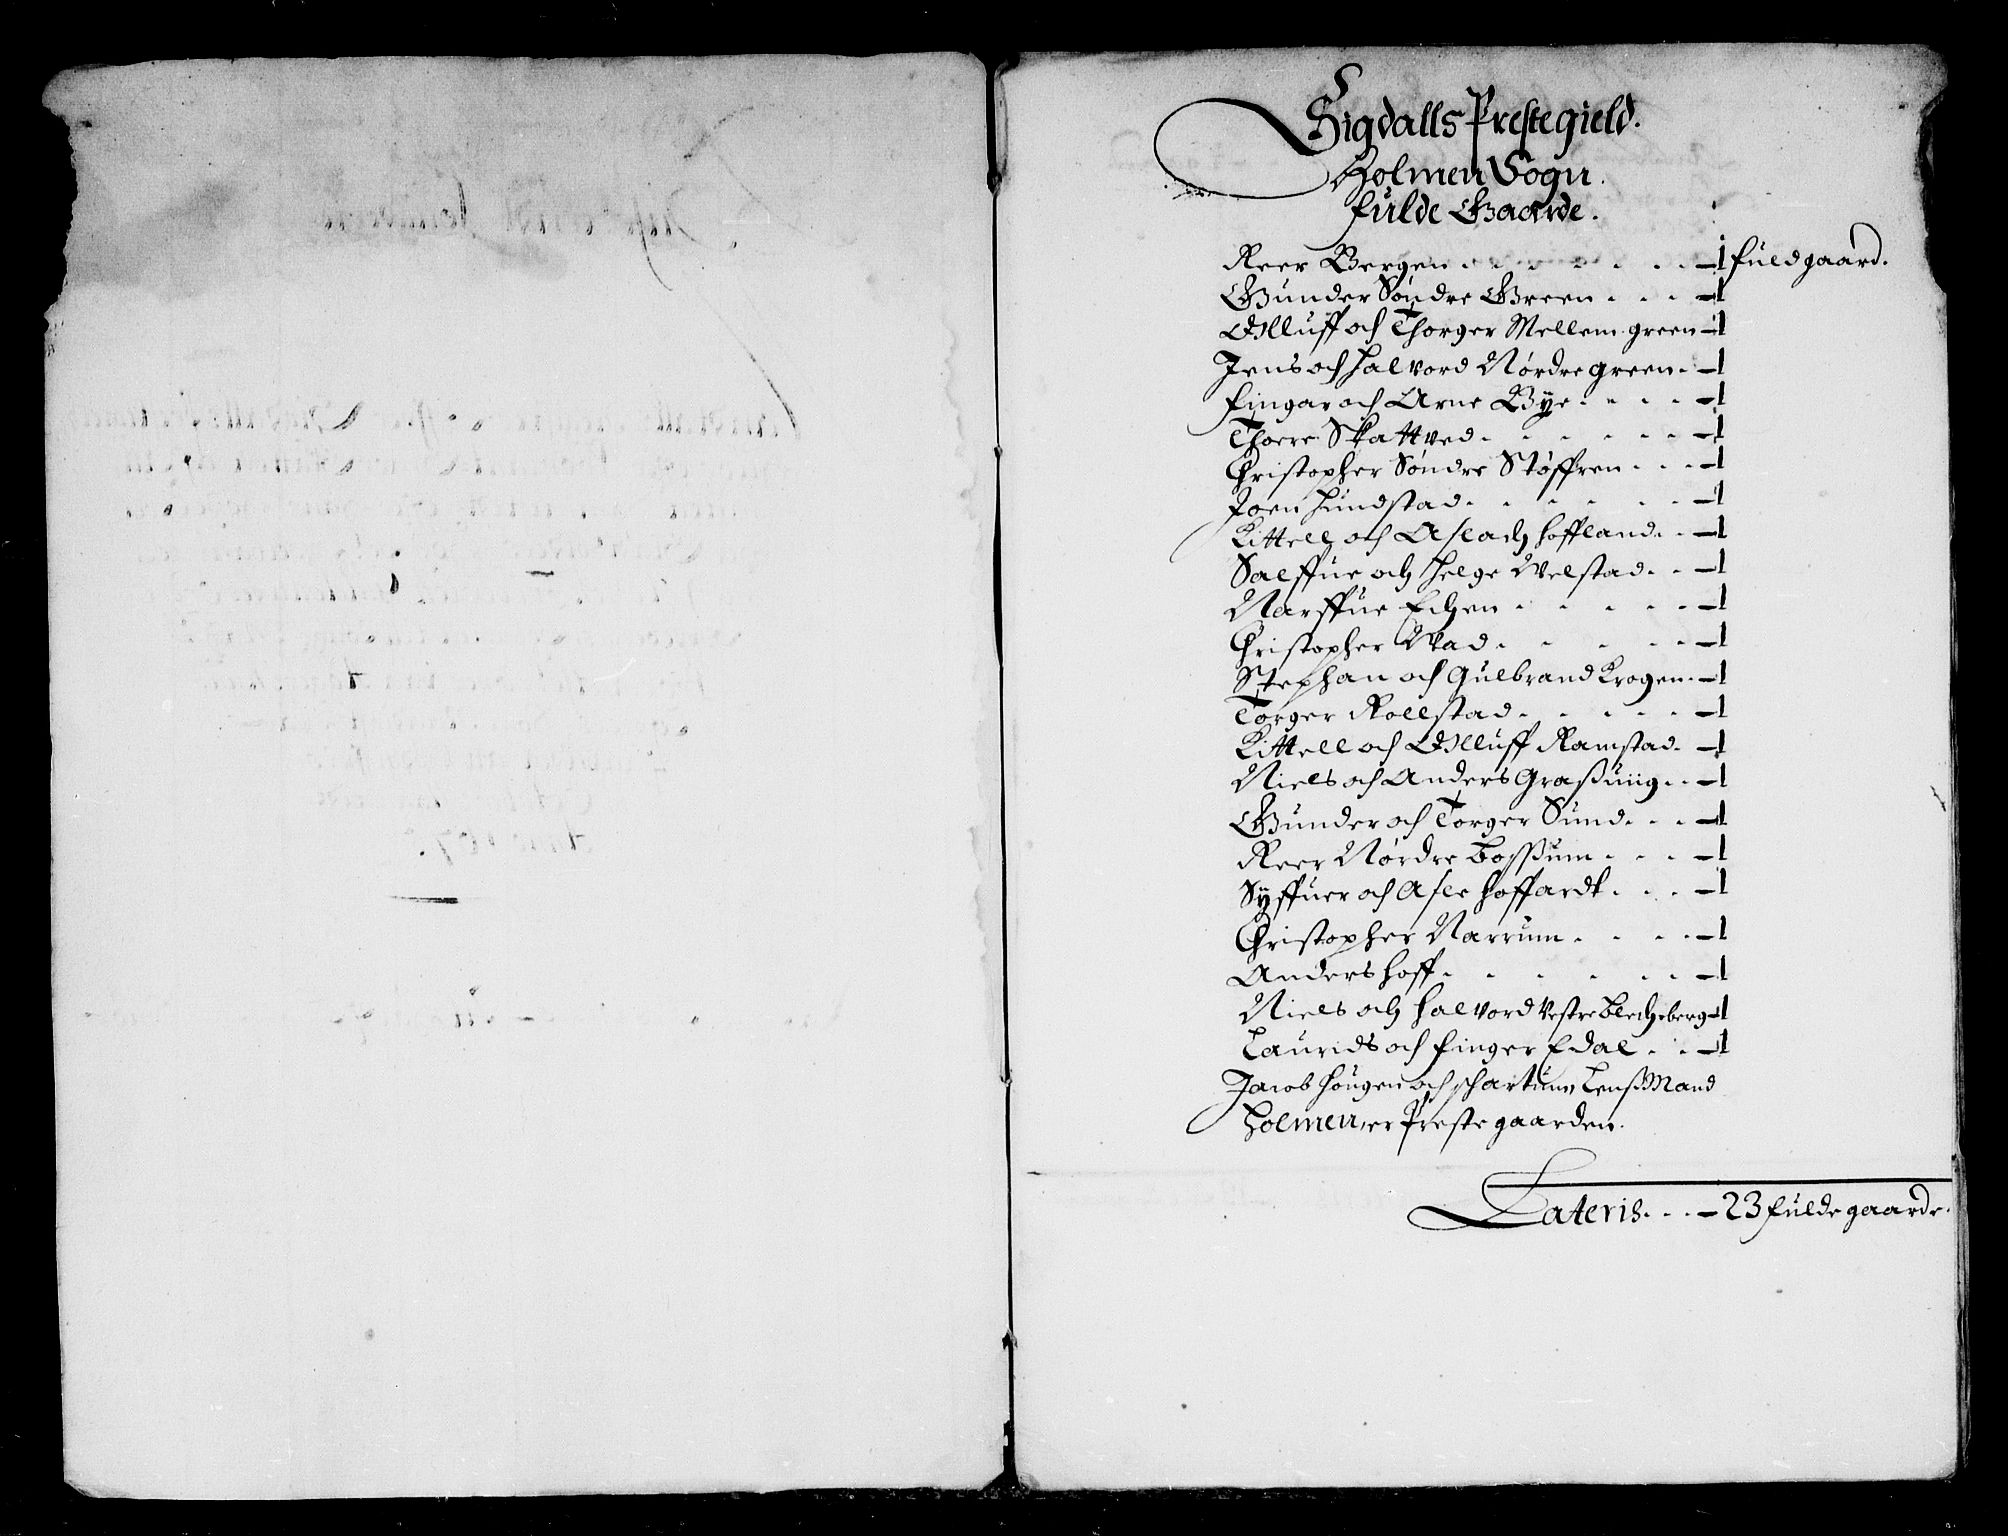 Sigdalls Prestegield.
Holmen Sogn.
fulde Gaarde.
Reer Bergen . . . . . . . — 1 fuldgaard.
Gunder Søndre Green . . . — 1
Olluff och Thorger Mellem green — 1
Jens och Halvord Nørdre green . — 1
fingar och Arne Bÿe . . . . — 1
Thoere Skattved . . . . . . — 1
Christopher Søndre Støffren . . . — 1
Joen Hundstad . . . . . . — 1
Kittell och Aslach Hoffland . . — 1
Salffue och Helge Velstad . . — 1
Narffue Echen . . . . . . — 1
Christopher Wad . . . . . — 1
Stephan och Gulbrand Krogen . — 1
Torger Rollstad . . . . . — 1
Kittell och Olluff Ramstad . — 1
Niels och Anders Graßuiig . . — 1
Gunder och Torger Sund . . . — 1
Reer Nørdre Boßum . . . — 1
Sÿffuer och Asle Hoffardt . . . — 1
Christopher Narrum . . . . — 1
Anders Hoff . . . . . . — 1
Niels och Halvord Vestre Blecheberg — 1
Laurids och finger Edal . . — 1
Jacob Hougen och schartum, Lenß Mand
Holmen, er Prestegaarden.
Lateris . . . — 23 fulde gaarde.